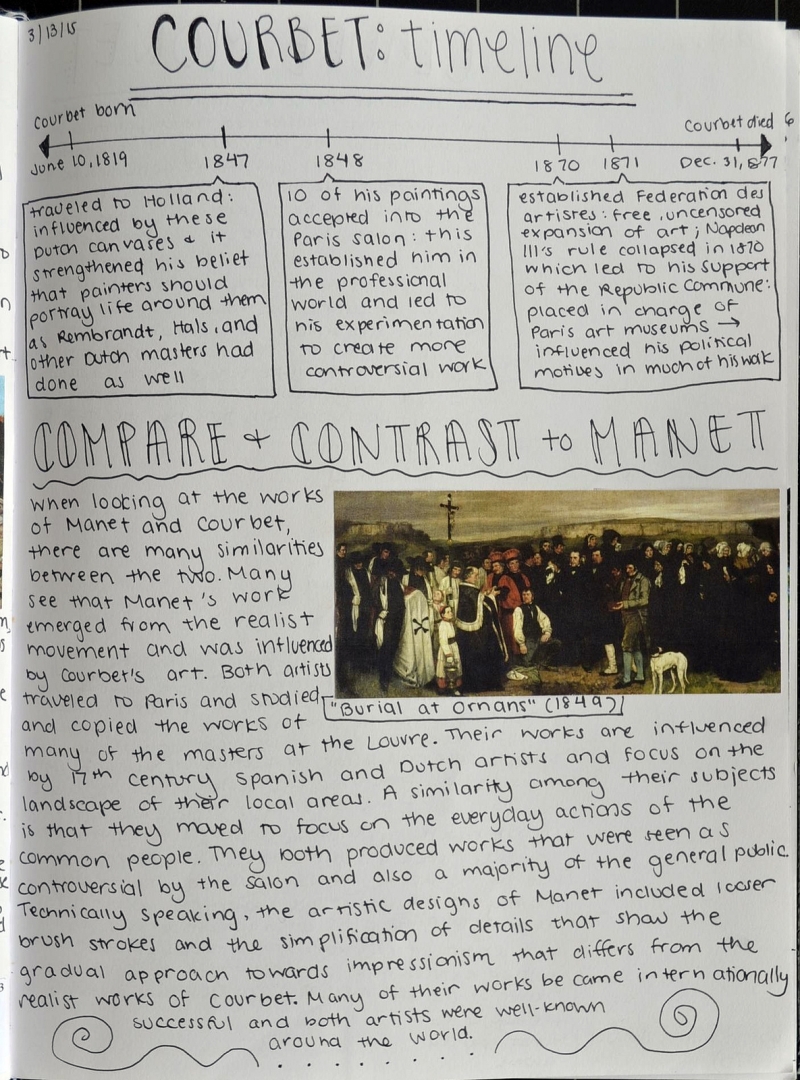 3/13/15
COURBET: timeline
Courbet born
Courbet died
June 10, 1819
1847
1848
1870
1871
Dec. 31, 1877
traveled to Holland:
influenced by these
Dutch canvases & it
strengthened his belief
that painters should
portray life around them
as Rembrandt, Hals, and
other Dutch masters had
done as well
10 of his paintings
accepted into the
Paris salon: this
established him in
the professional
world and led to
his experimentation
to create more
controversial work
established Federation des
artisres: free, uncensored
expansion of art; Napoleon
III's rule collapsed in 1870
which led to his support
of the Republic Commune:
placed in charge of
Paris art museums →
influenced his political
motives in much of his wok
COMPARE & CONTRAST to MANET
When looking at the works
of Manet and Courbet,
there are many similarities
between the two. Many
see that Manet's work
emerged from the realist
movement and was influenced
by Courbet's art. Both artists
traveled to Paris and studied
"Burial at Ornans" (1849)
and copied the works of
many of the masters at the Louvre. Their works are influenced
by 17th century Spanish and Dutch artists and focus on the
landscape of their local areas. A similarity among their subjects
is that they moved to focus on the everyday actions of the
common people. They both produced works that were seen as
controversial by the salon and also a majority of the general public.
Technically speaking, the artistic designs of Manet included looser
brush strokes and the simplification of details that show the
gradual approach towards impressionism that differs from the
realist works of Courbet. Many of their works became internationally
successful and both artists were well-known
around the world.